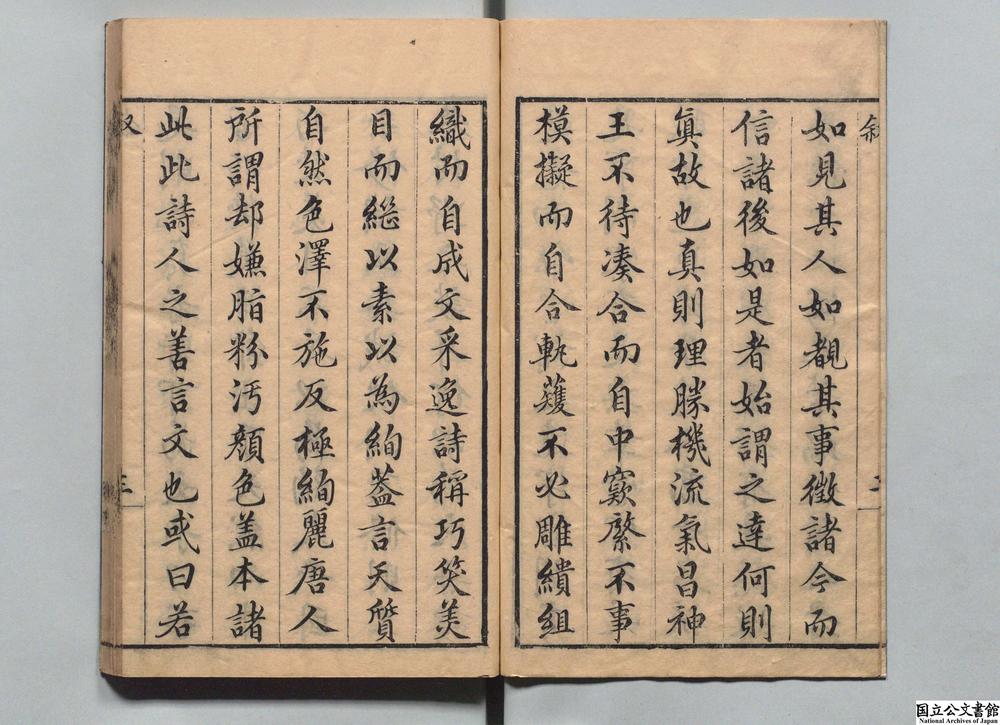 如見其人如覩其事徵諸今而
信諸後如是者始謂之達何則
眞故也真則理勝機流氣昌神
王不待凑合而自中窾綮不事
模擬而自合軌矱不必雕繢組
織而自成文采逸詩稱巧笑美
目而繼以素以為絢葢言天質
自然色澤不施反極絢麗唐人
所謂却嫌脂粉汚顏色盖本諸
此此詩人之善言文也或曰若
三
国立公文書館
National Archives of Japan